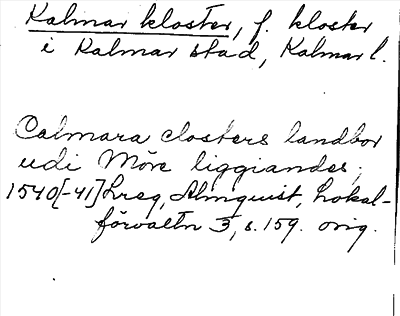 Kalmar kloster, f. kloster
i Kalmar stad, Kalmar l.
Calmara closters landbor
udi Möre liggiandes;
1540[-41] Lreg, Almquist, Lokal-
förvaltn 3, s. 159. orig.